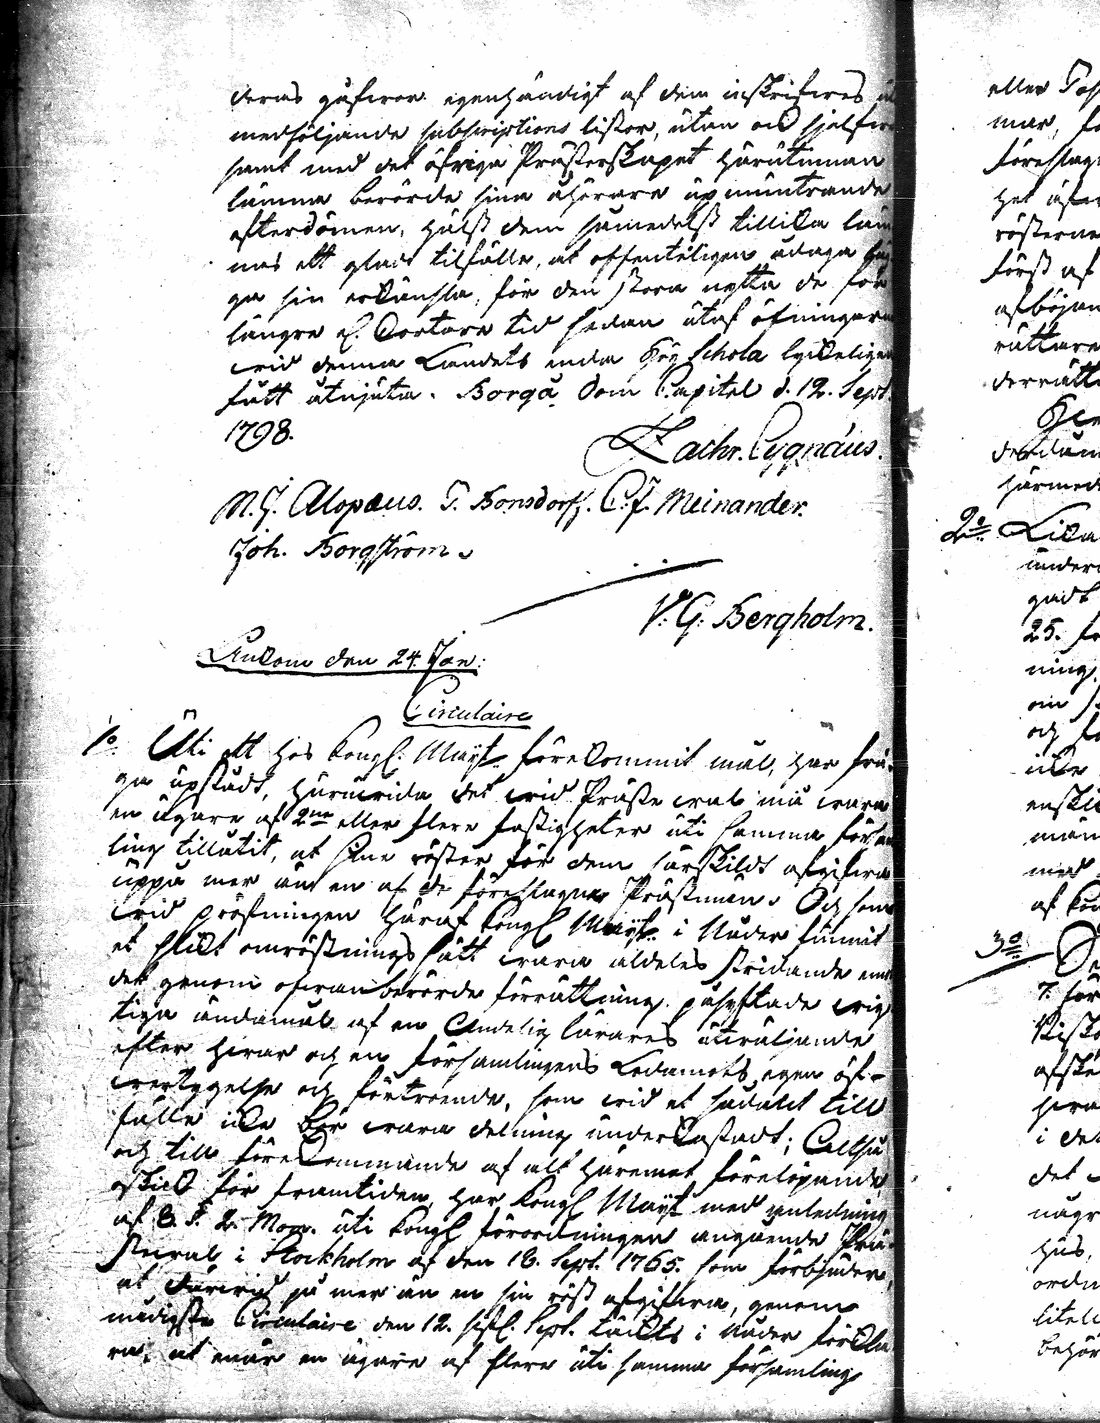 deras gåfvor egenhändigt af dem inskrifves
medföljande subscriptions listor, utan ock sjelfve
samt med det öfriga Prästerskapet härutinnan
lämna berörde sina åhörare upmuntrande
efterdömen, hälst dem smedelst tillika läm
nas ett glads tilfälle, at offenteligen ådaga läg
ga sin erkänsla, för den stora nytta de för
längre el. kortare tid sedan utaf öfningarne
wid denna Landets enda Hög Schola lyckeligen
fått åtnjuta. Borgå Dom Capitel d. 12. Sept.
1798.
Zachr. Cygnæus.
M. J. Alopæus. T. Bonsdorff. C. J. Meinander.
Joh. Borgström.
V. G. Bergholm.
Ankom den 24. Jan:
Circulaire
1o. Uti ett hos Kongl. Mayt. förekommit mål, har frå-
ga upstådt, huruvida det wid Präste wal må wara
en ägare af 2ne eller flere fastigheter uti samma försam
ling tillåtit, at sine röster för dem särskildt afgifva
uppå mer än en af de föreslagne Prästmän. Och som
wid pröfningen häraf Kongl. Mayt. i Nåder funnit
et slikt omröstnings sätt wara aldeles stridande emot
det genom ofvanberörde förrättning påsyftade wig
tiga ändamål af en Andelig Lärares utwäljande
efter hvar och en församlingens Ledamots egen öf-
wertygelse och förtroende, som wid et sådant till
fälle icke bör wara delning underkastadt; Altså
och till förekommande af alt häremot förelöpande
oskick för framtiden, har Kongl. Mayt. med anledning
af 8. §. 2. Mom. uti Kongl. förordningen angående Prä-
stewal i Stockholm af den 18. Sept. 1765. som förbjuder,
at därwid på mer än en sin röst afgifva, genom
nådigste Circulaire den 12. sistl. Sept. täckts i Nåder förkla
ra, at enär en ägare af flere uti samma församling
eller
mar,
föreslag
het
rösterne
först af
afböjan
rättare
derrätt
härmed
2o. Lika
under
25.
ning,
om
och
icke
enski
män
med
af Kon
3o.
7. för
Bisko
afske
i det
det
några
hus,
ordn
behör